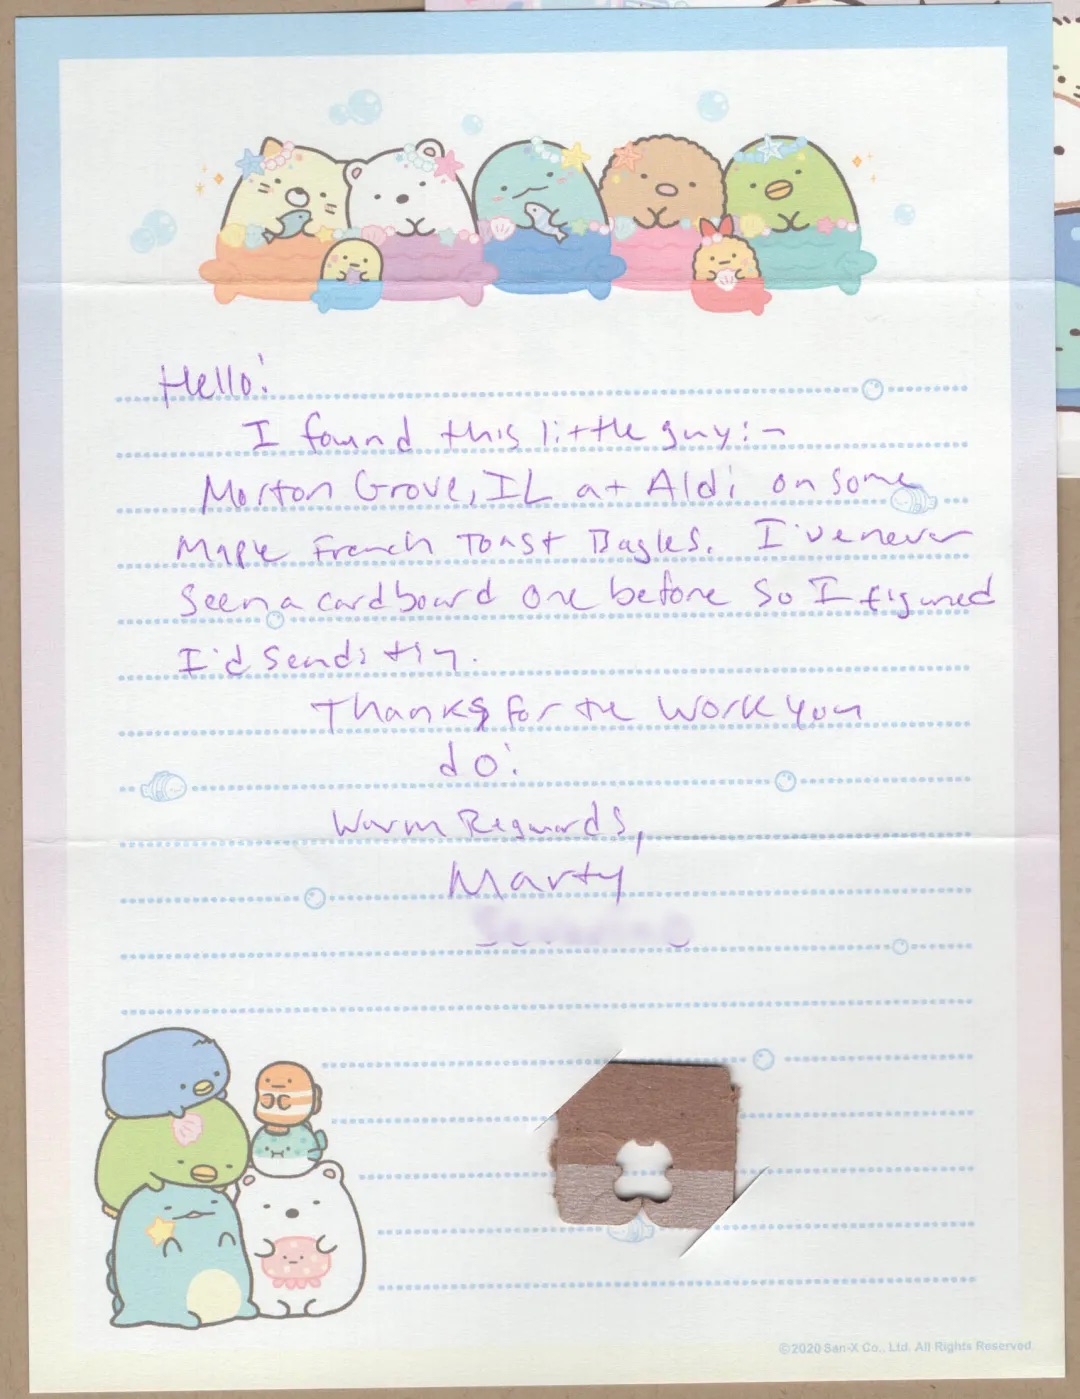 Hello!
I found this little guy in
Morton Grove, IL at Aldi on some
Maple French Toast Bagles. I've never
seen a cardboard one before so I figured
I'd send it in.
Thanks for the work you
do!
Warm Regards,
Marty
©2020 San-X Co., Ltd. All Rights Reserved.